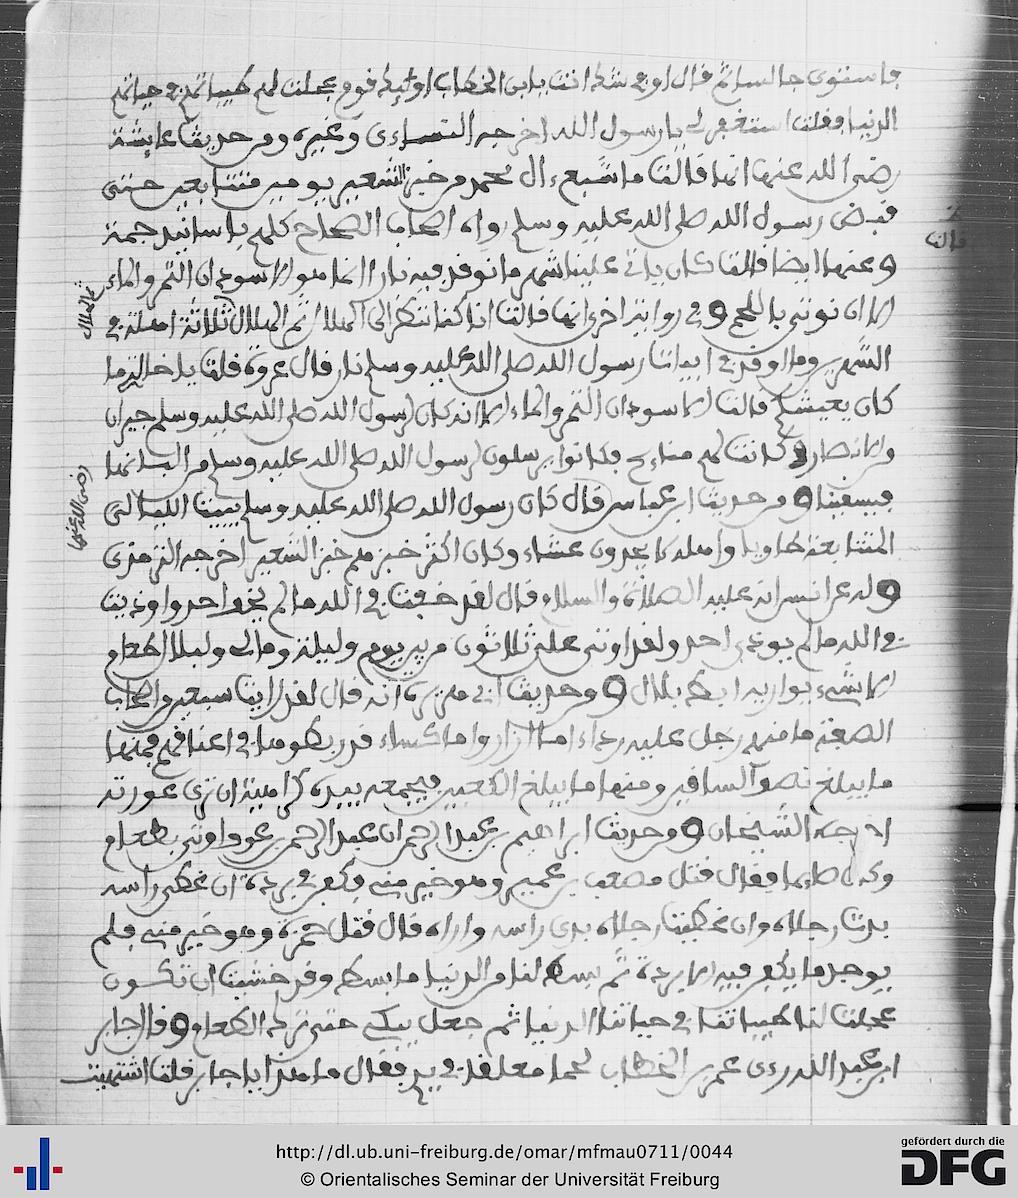 فاستوى جالسا ثم قال اوفي شك انت يابن الخطاب اولئك قوم عجلت لهم طيباتهم في حياتهم
الدنيا فقلت استغفر لي يا رسول الله اخرجه النساءي وغيره ومن حديث عايشة
رضي الله عنها انها قالت ما شبع ءال محمد من خبز الشعير يومين متتابعين حتى
قبض رسول الله صلى الله عليه وسلم رواه اصحاب الصحاح كلهم باسانيد جمة
وعنها ايضا قالت كان ياتي علينا شهر ما نوقد فيه نارا انما هو الاسودان التمر والماء
الا ان نوتى باللحم وفي رواية اخرى انها قالت انا كنا لننظر الى الهلال ثم الهلال ثلاثة اهلة في
ثم الهلال
الشهرين وما اوقد في ابيات رسول الله صلى الله عليه وسلم نار قال عروة فقلت يا خالة ما
كان يعيشكم قالت الاسودان التمر والماء الا انه كان لرسول الله صلى الله عليه وسلم جيران
من الانصار وكانت لهم منايح فكانوا يرسلون لرسول الله صلى الله عليه وسلم من البانها
فيسقينا ومن حديث ابن عباس قال كان رسول الله صلى الله عليه وسلم يبيت الليالي
رضي الله عنهما
المتتابعة طاويا واهله لا يجدون عشاء وكان اكثر خبزهم خبز الشعير اخرجه الترمذي
وله عن انس انه عليه الصلاة والسلام قال لقد خفت في الله ما لم يخف احد واوذيت
في الله ما لم يوذى احد ولقد اوتى علي ثلاثون من بين يوم وليلة ومالي ولبلال طعام
الا شيء يواريه ابط بلال وحديث ابي هريرة انه قال لقد رايت سبعين من اصحاب
الصفة ما منهم رجل عليه رداء اما ازار واما كساء قد ربطوها في اعناقهم فمنها
ما يبلغ نصف الساقين ومنها ما يبلغ الكعبين فيجمعه بيده كراهية ان ترى عورته
اخرجه الشيخان وحديث ابراهيم بن عبد الرحمن ان عبد الرحمن بن عوف اوتي بطعام
وكان صايما فقال قتل مصعب بن عمير وهو خير مني فكفن في بردة ان غطي راسه
بدت رجلاه وان غطيت رجلاه بدى راسه واراه قال قتل حمزة وهو خير مني فلم
يوجد ما يكفن فيه الا بردة ثم بسط لنا من الدنيا ما بسط وقد خشيت ان تكون
عجلت لنا طيباتنا في حياتنا الدنيا ثم جعل يبكي حتى ترك الطعام وقال جابر
ابن عبد الله رءى عمر بن الخطاب لحما معلقا في يدي فقال ما هذا يا جابر قلت اشتهيت
http://dl.ub.uni-freiburg.de/omar/mfmau0711/0044
© Orientalisches Seminar der Universität Freiburg
gefördert durch die
DFG